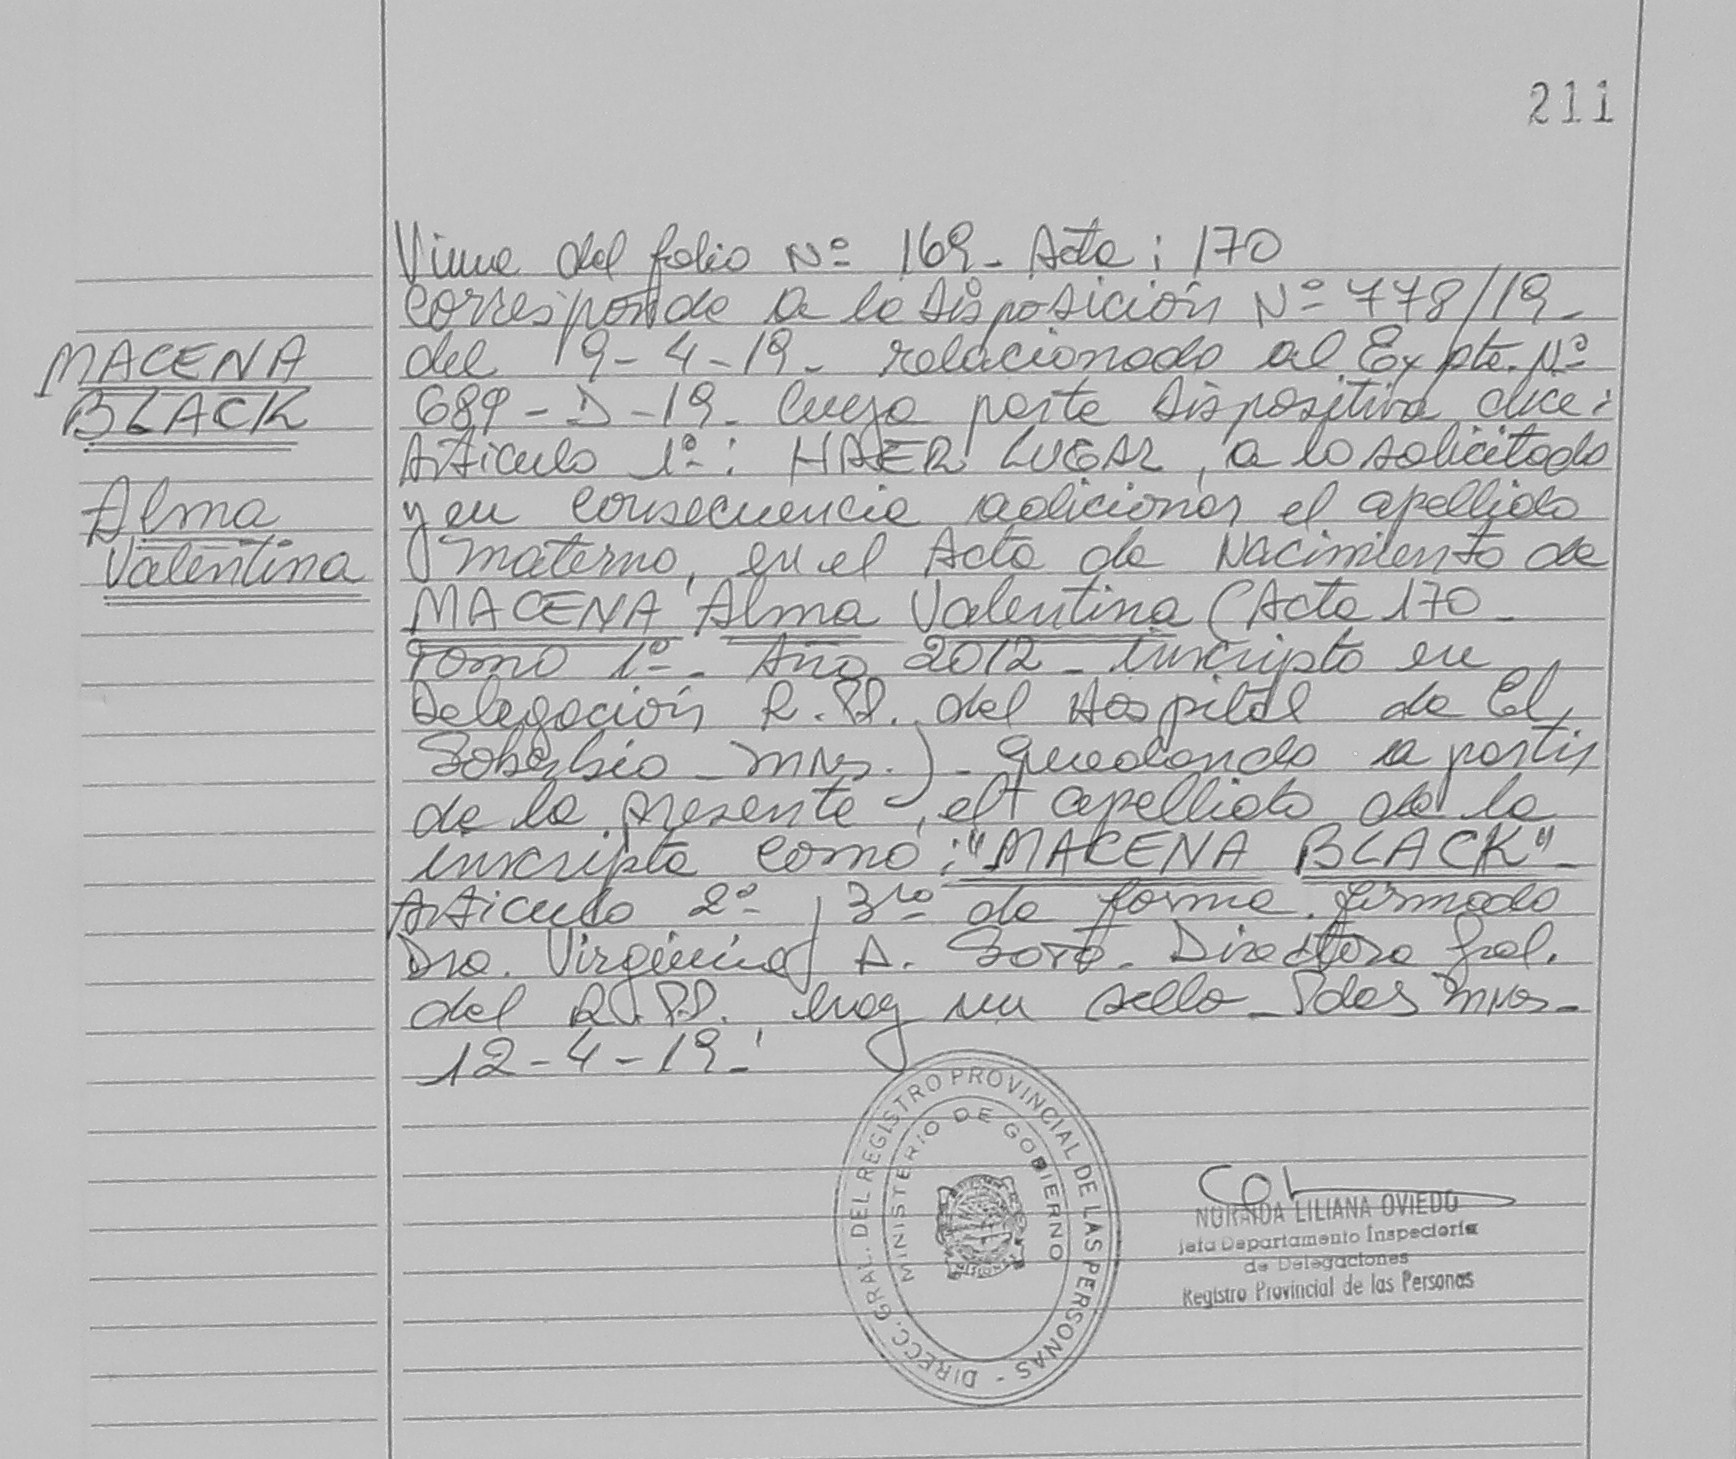 211
Viene del folio Nº 169_ Acta: 170
corresponde a la disposición Nº 778/19_
del 9-4-19_ relacionado al Expte. Nº
689-D-19_ cuya parte dispositiva dice:
MACENA
BLACK
Alma
Valentina
Artículo 1º: HAER LUGAR, a lo solicitado
y en consecuencia adicionar el apellido
materno, en el Acta de Nacimiento de
MACENA Alma Valentina (Acta 170_
Tomo 1º_ Año 2012_ inscripto en
Delegación R.P.P. del Hospital de El
Soberbio _ Mnes.)_ quedando a partir
de la presente, el apellido de la
inscripta como: "MACENA BLACK"_
Artículo 2º y 3ro de forma. firmado
Dra. Virginia A. Soto_ Directora Gral.
del R.P.P. hay un sello_ Pdas Mnes_
12-4-19_
DIRECC. GRAL. DEL REGISTRO PROVINCIAL DE LAS PERSONAS -
MINISTERIO DE GOBIERNO
MISIONES
NORAIDA LILIANA OVIEDO
Jefa Departamento Inspectoría
de Delegaciones
Registro Provincial de las Personas